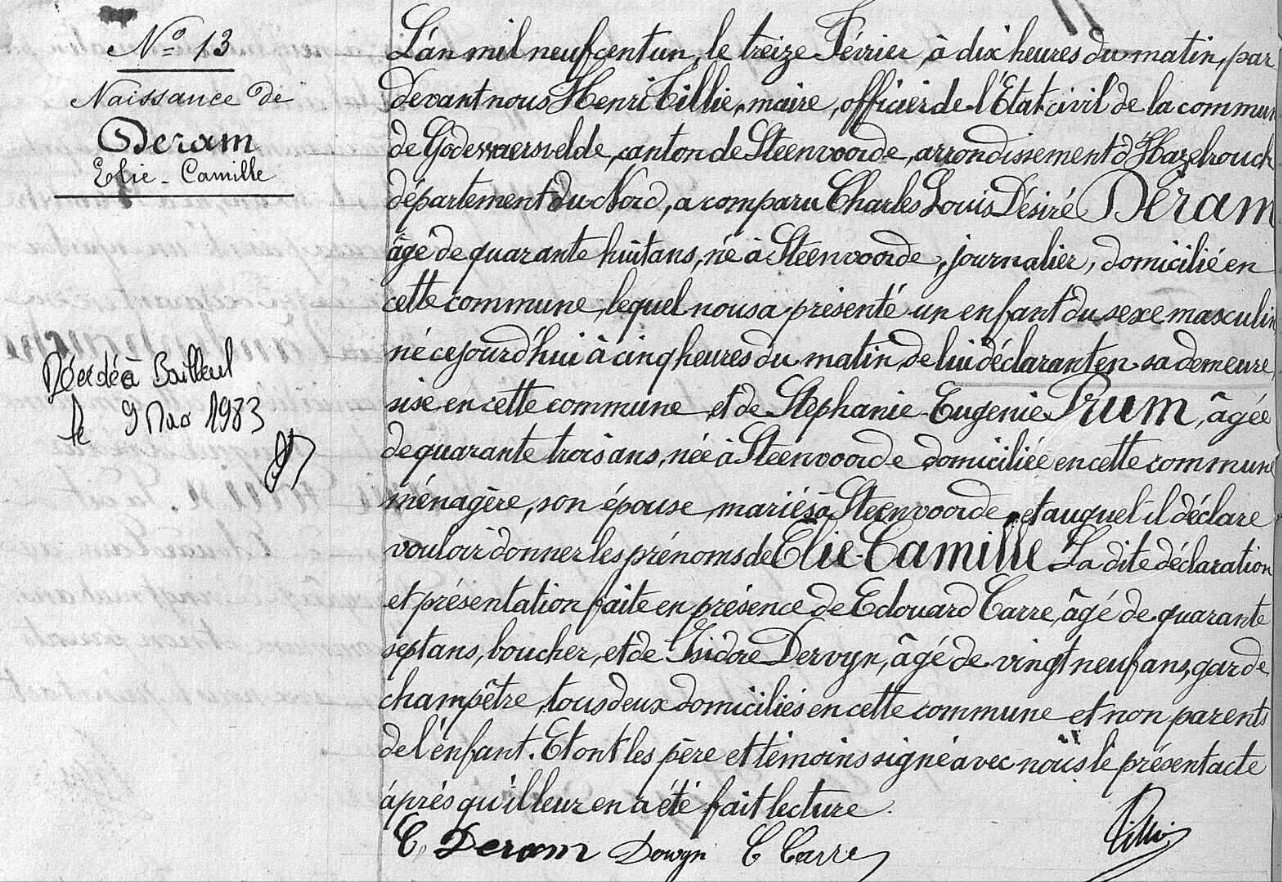 Nº 13
Naissance de
Deram
Elie-Camille
Décédé à Bailleul
le 9 Mao 1983
L'an mil neuf cent un, le treize Février, à dix heures du matin, par
devant nous Henri Tillie, maire, officier de l'Etat civil de la commun
de Godewaersvelde, canton de Steenvoorde, arrondissement d'Hazebrouck
département du Nord, a comparu Charles Louis Désiré Déram
âgé de quarante huit ans, né à Steenvoorde, journalier, domicilié en
cette commune, lequel nous a présenté un enfant du sexe masculin
né ce jourd'hui à cinq heures du matin de lui déclarant en sa demeure,
sise en cette commune, et de Stéphanie Eugénie Prum, âgée
de quarante trois ans, née à Steenvoorde domiciliée en cette commune
ménagère, son épouse, mariés à Steenvoorde, et auquel il déclare
vouloir donner les prénoms de Elie-Camille La dite déclaration
et présentation faite en présence de Edouard Carre, âgé de quarante
sept ans, boucher, et de Isidore Dervyn, âgé de vingt neuf ans, garde
champêtre, tous deux domiciliés en cette commune et non parents
de l'enfant. Et ont les père et témoins signé avec nous le présent acte
après qu'il leur en a été fait lecture.
C. Deram Dervyn E Carre Tillie